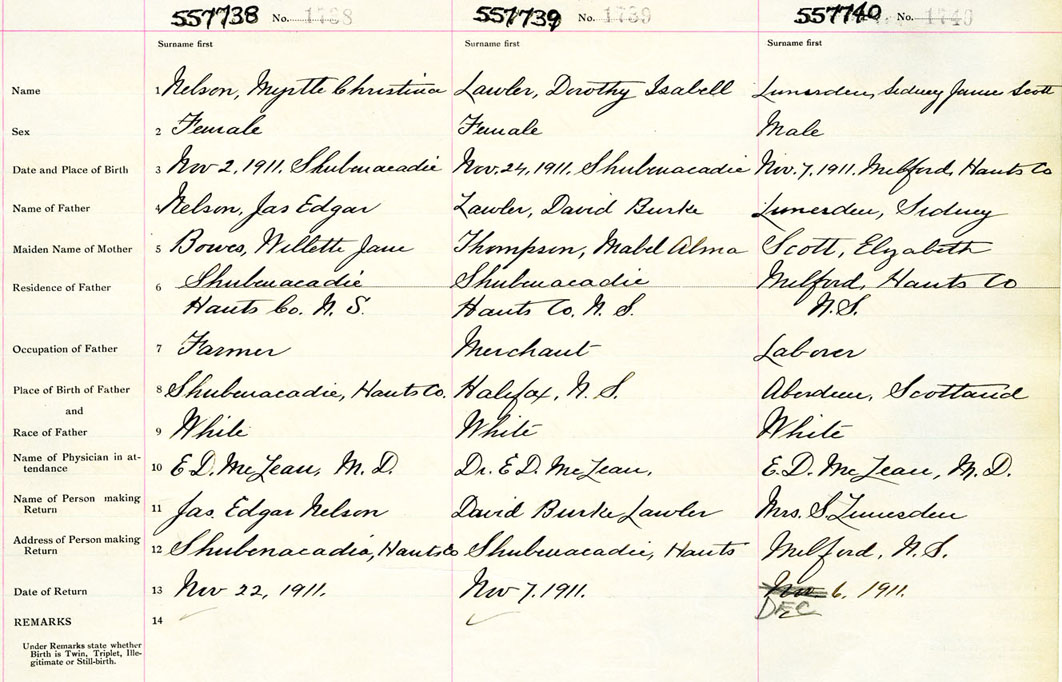 557738 No. 1738 557739 No. 1739 557740 No. 1740
Surname first Surname first Surname first
Name 1 Nelson, Myrtle Christina Lawler, Dorothy Isabell Lumesden, Sidney James Scott
Sex 2 Female Female Male
Date and Place of Birth 3 Nov 2, 1911. Shubenacadie Nov. 24, 1911. Shubenacadie Nov. 7, 1911. Milford, Hants Co
Name of Father 4 Nelson, Jas Edgar Lawler, David Burke Lumesden, Sidney
Maiden Name of Mother 5 Bowes, Willette Jane Thompson, Mabel Alma Scott, Elizabeth
Residence of Father 6 Shubenacadie Shubenacadie Milford, Hants Co
Hants Co. N. S. Hants Co. N. S. N.S.
Occupation of Father 7 Farmer Merchant Laborer
Place of Birth of Father 8 Shubenacadie, Hants Co. Halifax, N. S. Aberdeen, Scotland
and
Race of Father 9 White White White
Name of Physician in at-
tendance 10 E. D. McLean, M. D. Dr. E. D. McLean, E. D. McLean, M. D.
Name of Person making
Return 11 Jas. Edgar Nelson David Burke Lawler Mrs. S. Lumesden
Address of Person making
Return 12 Shubenacadie, Hants Co Shubenacadie, Hants Milford, N. S.
Date of Return 13 Nov 22, 1911. Nov 7. 1911. Nov. 6, 1911.
DEC
REMARKS 14
Under Remarks state whether
Birth is Twin, Triplet, Ille-
gitimate or Still-birth.